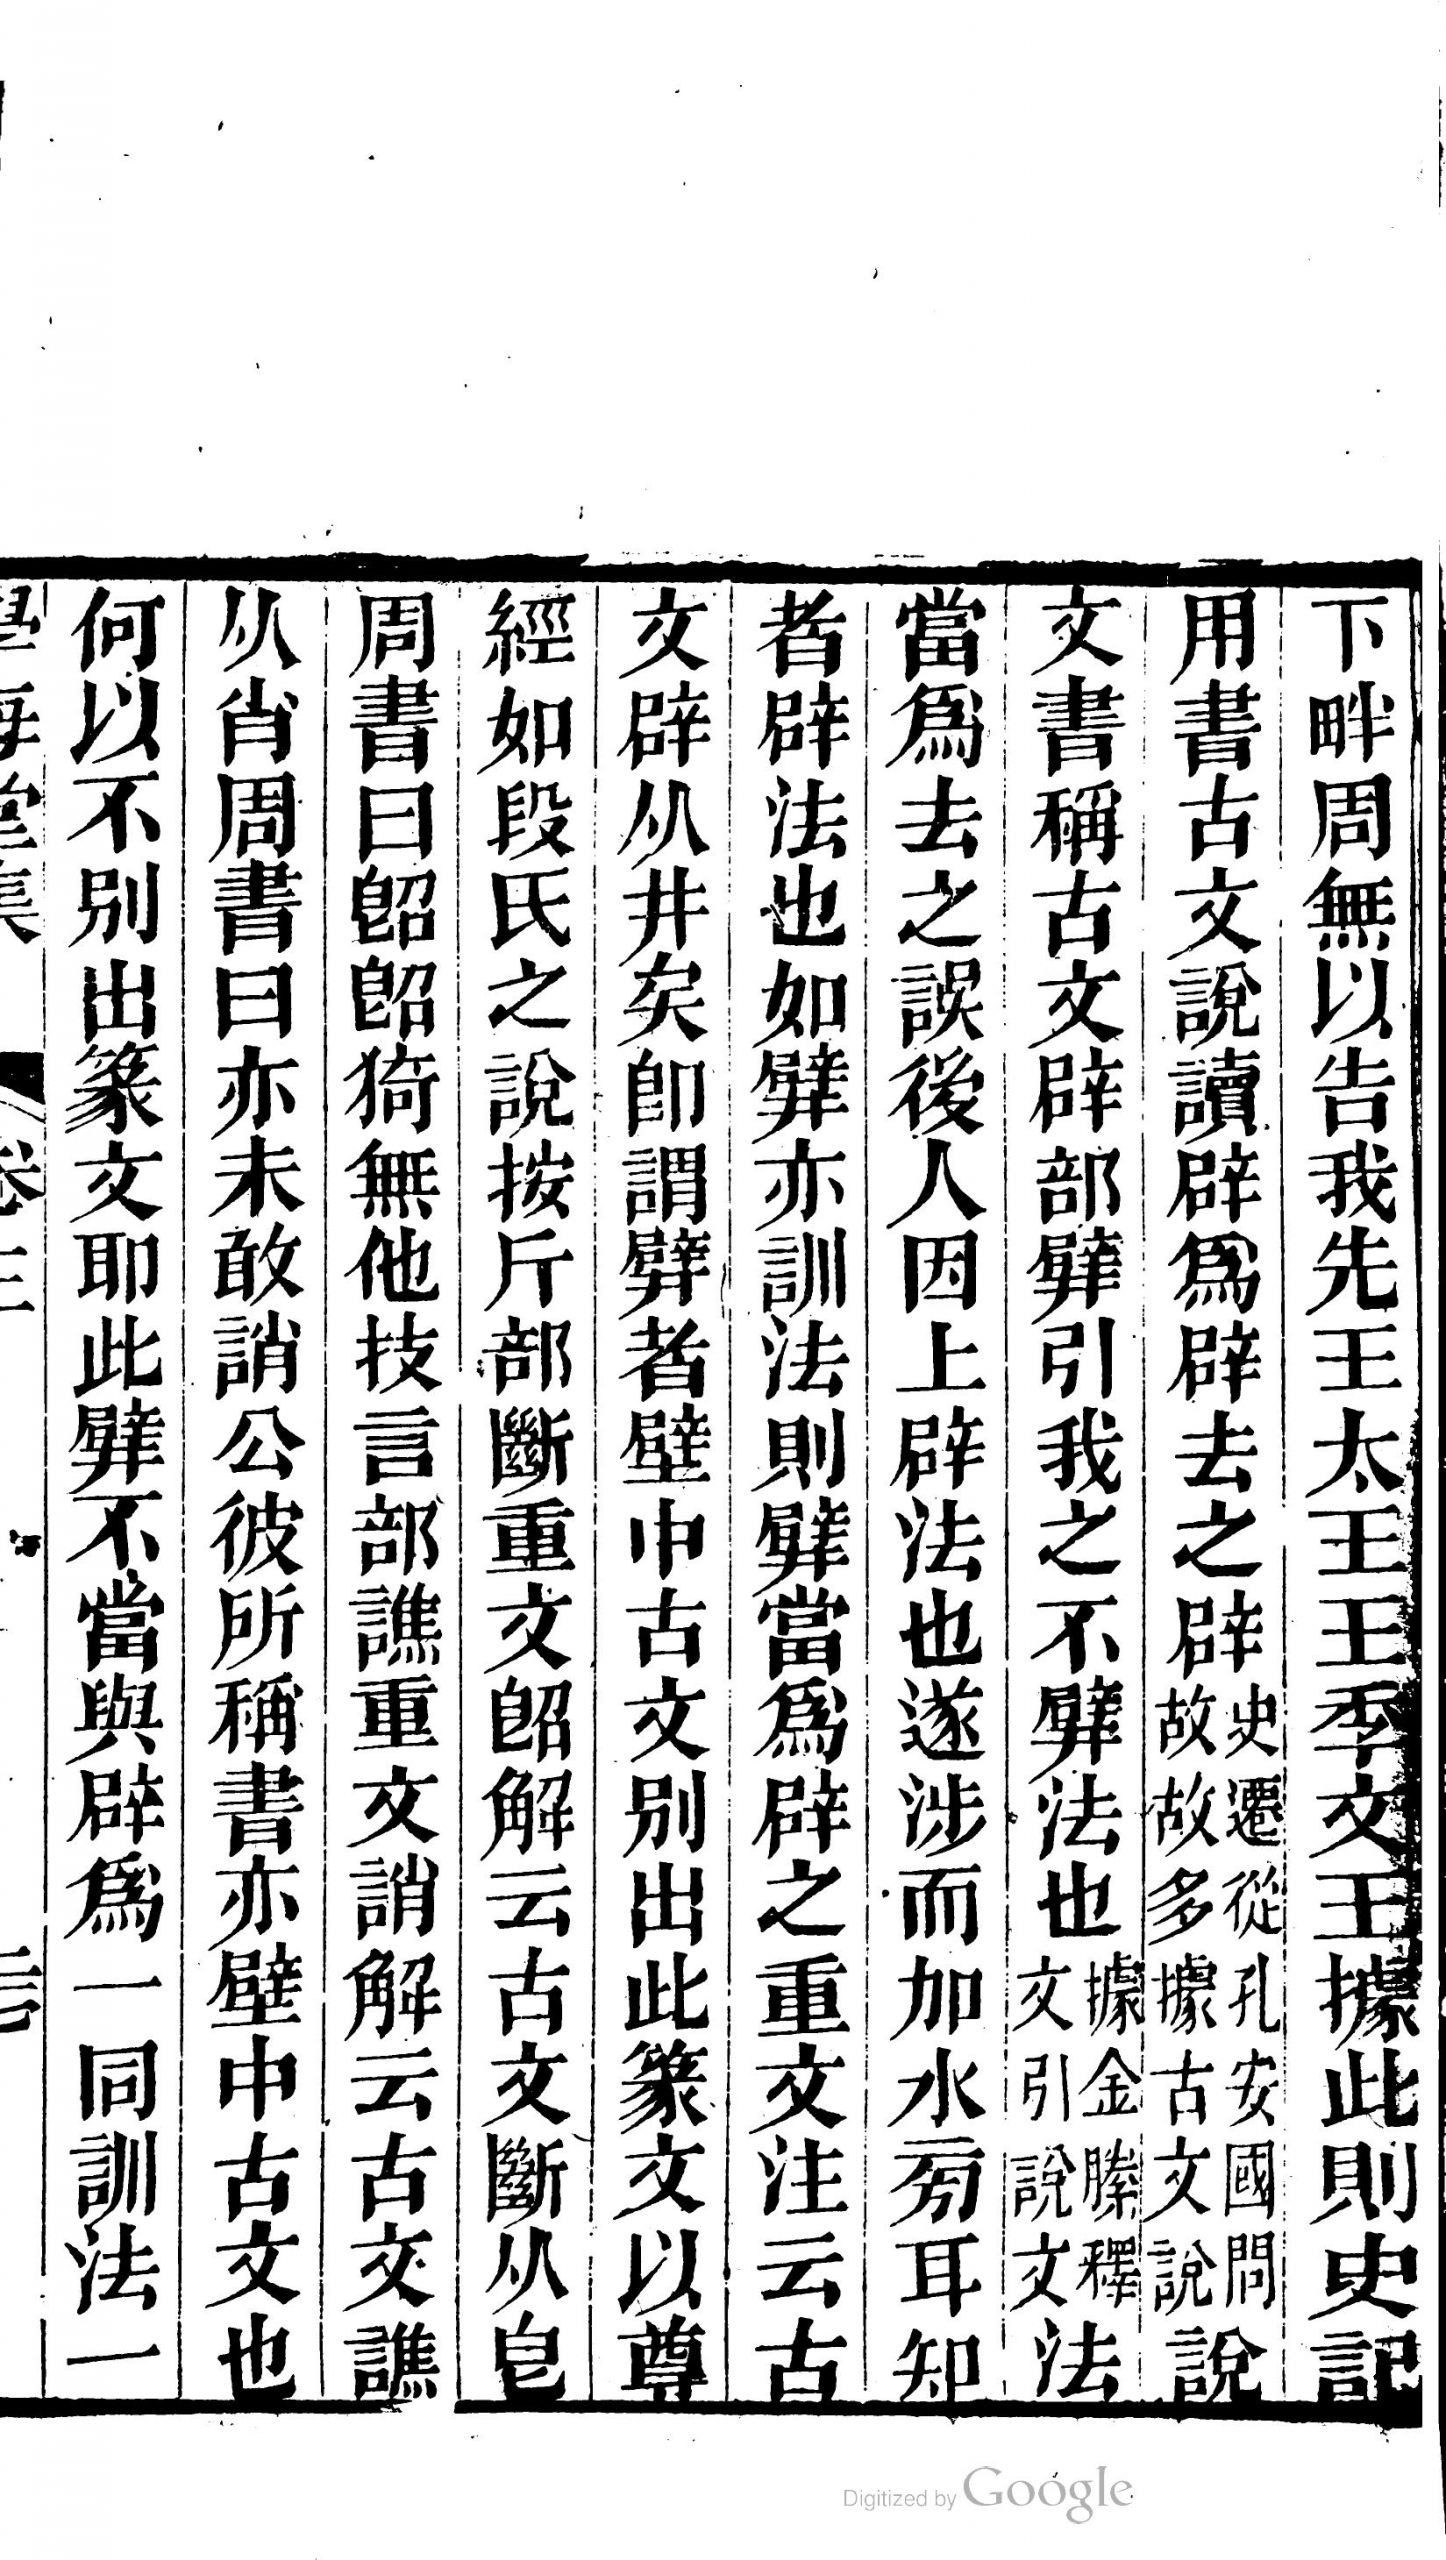 下畔周無以告我先王太王王季文王據此則史記
用書古文說讀辟爲辟去之辟史遷從孔安國問故故多據古文說說
文書稱古文辟部𨐨引我之不𨐨法也據金縢釋文引說文法
當爲去之誤後人因上辟法也遂涉而加水㫄耳知
者辟法也如𨐨亦訓法則𨐨當爲辟之重文注云古
文辟从井矣卽謂𨐨者壁中古文別出此篆文以尊
經如段氏之說按斤部斷重文解云古文斷从皀
周書曰猗無他技言部譙重文誚解云古文譙
从肖周書曰亦未敢誚公彼所稱書亦壁中古文也
何以不別出篆文耶此𨐨不當與辟爲一同訓法一
學海堂集 卷
Digitized by Google